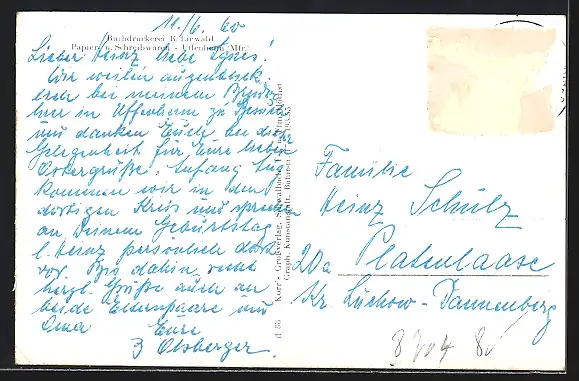 11./6. 60
Buchdruckerei R. Tiewald
Papier- u. Schreibwaren - Uffenheim /Mfr.
Lieber Heinz liebe Agnes!
Wir weilen augenblick-
lich bei meinem Bruder
hier in Uffenheim zu Besuch
und danken Euch bei dieser
Gelegenheit für Eure lieben
Ostergrüße. Anfang Aug.
kommen wir in den
dortigen Kreis und sprechen
an Deinem Geburtstag
l. Heinz persönlich dort
vor. Bis dahin recht
herzl. Grüße auch an
beide Elternpaare und
Oma Eure
3 Olsberger.
Korr's Großverlag,
Graph. Kunstanstalt,
d 85
Familie
Heinz Schulz
20a Platenlaase
Kr. Lüchow-Dannenberg